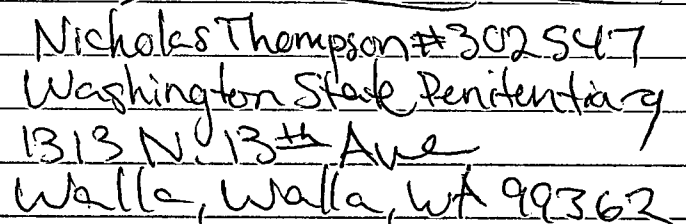 Nicholas Thompson #302547
Washington State Penitentiary
1313 N. 13th Ave
Walla, Walla, WA 99362